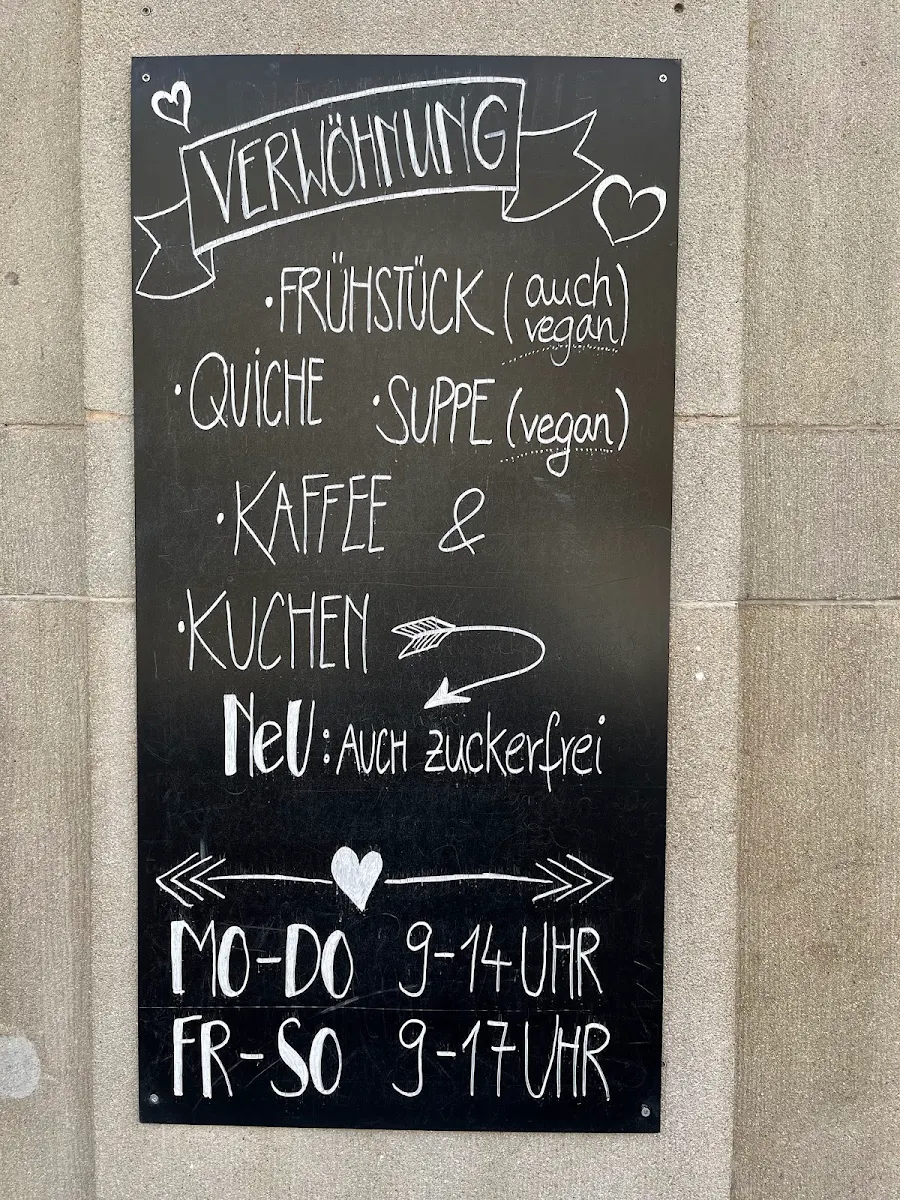 VERWÖHNUNG
• FRÜHSTÜCK (auch vegan)
• QUiCHE • SUPPE (vegan)
• KAFFEE &
• KUCHEN
NeU: AUCH zuckerfrei
MO-DO 9-14 UHR
FR-SO 9-17 UHR